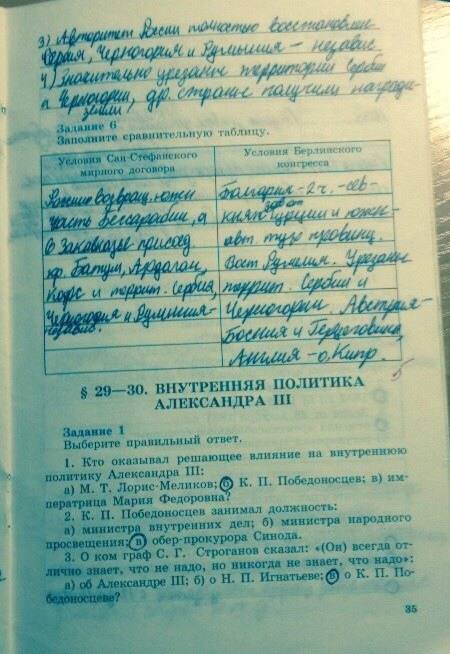 3) Авторитет России полностью восстановлен
Сербия, Черногория и Румыния - независ.
4) Значительно урезаны территории Сербии
и Черногории, др. страны получили награды-
земли,
Задание 6
Заполните сравнительную таблицу.
Условия Сан-Стефанского
мирного договора
Условия Берлинского
конгресса
России возвращ. южн
часть Бессарабии, а
в Закавказье присоед
кр. Батум, Ардаган,
Карс и террит. Сербия,
Черногория и Румыния-
независ.
Болгария - 2 ч. - сев-
княж зав от Турции и южн-
авт. тур провинц.
Вост Румелия. Урезаны
террит. Сербии и
Черногории. Австрия-
Босния и Герцеговина,
Англия - о. Кипр.
5
§ 29—30. ВНУТРЕННЯЯ ПОЛИТИКА
АЛЕКСАНДРА III
Задание 1
Выберите правильный ответ.
1. Кто оказывал решающее влияние на внутреннюю
политику Александра III:
а) М. Т. Лорис-Меликов; б) К. П. Победоносцев; в) им-
ператрица Мария Федоровна?
2. К. П. Победоносцев занимал должность:
а) министра внутренних дел; б) министра народного
просвещения; в) обер-прокурора Синода.
3. О ком граф С. Г. Строганов сказал: «(Он) всегда от-
лично знает, что не надо, но никогда не знает, что надо»:
а) об Александре III; б) о Н. П. Игнатьеве; в) о К. П. По-
бедоносцеве?
35